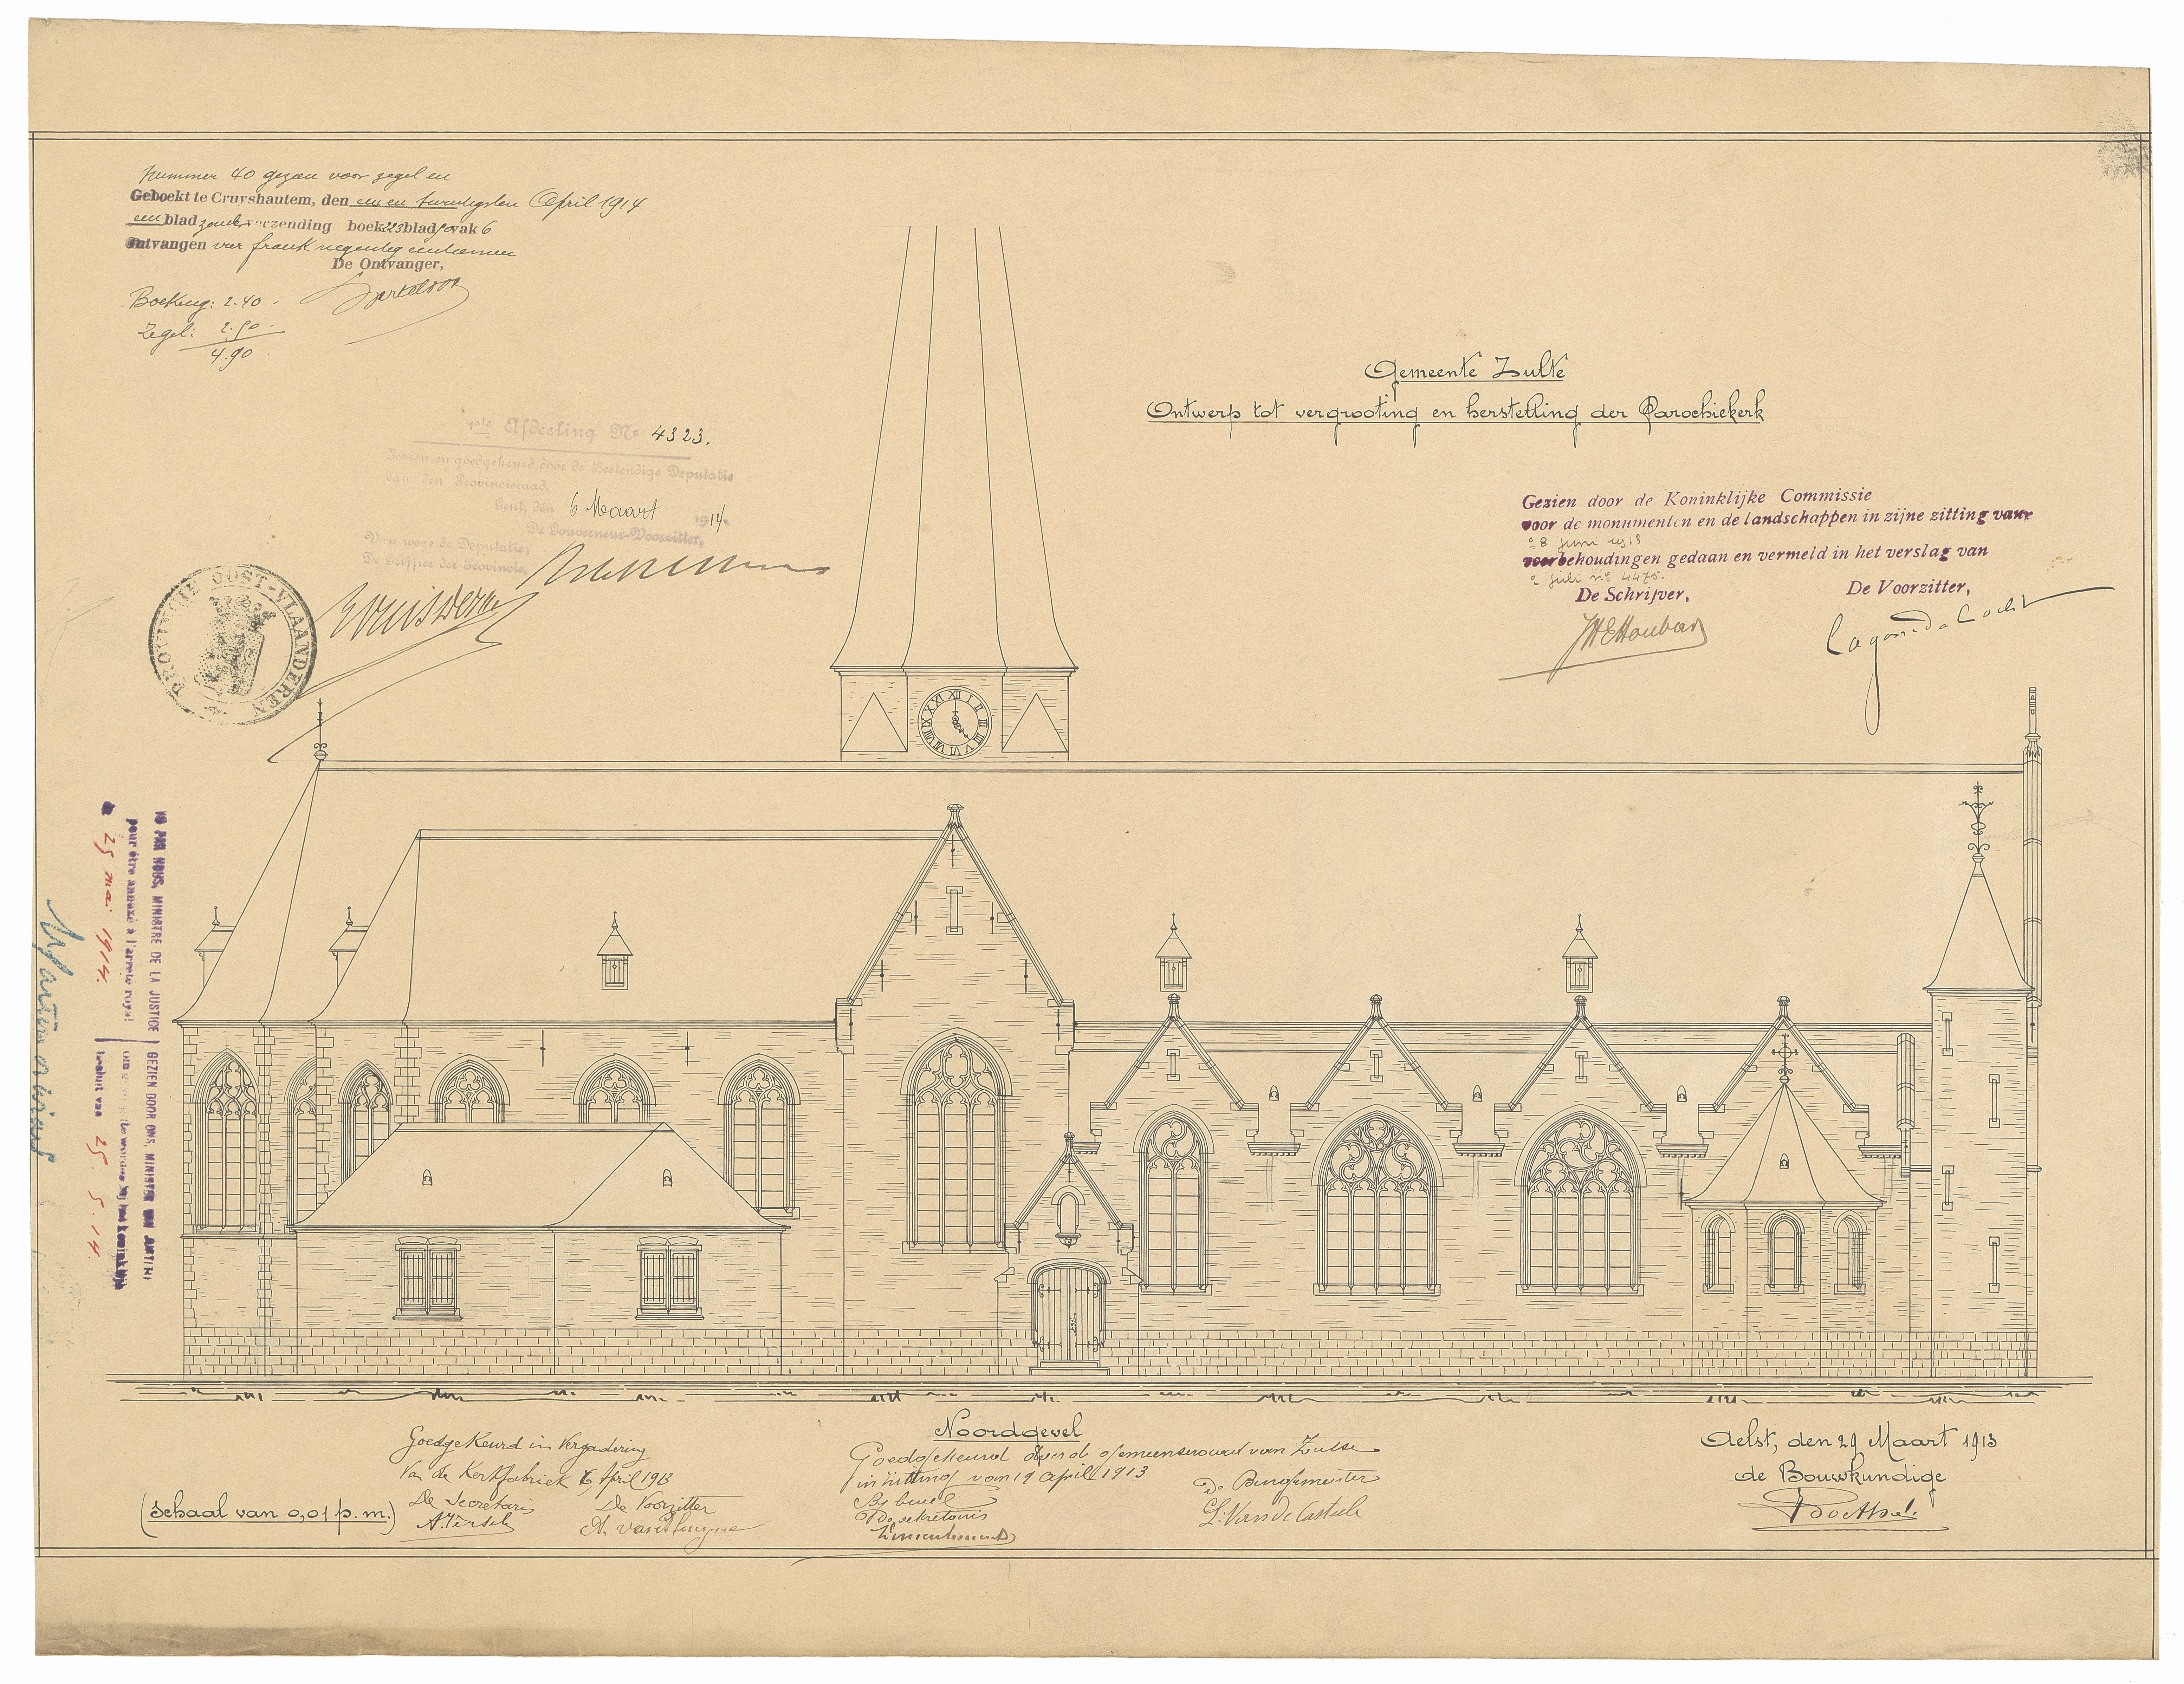 Nummer 40 gezien voor zegel en
Geboekt te Cruyshautem, den een en twintigsten April 1914
een blad zonder verzending boek blad vak 6
Ontvangen vier frank negentig centiemen
De Ontvanger,
Boeking: 2.40
Zegel: 2.50
4.90
Gemeente Zulte
Ontwerp tot vergrooting en herstelling der Parochiekerk
1ste Afdeeling No 4323.
Gezien en goedgekeurd door de Bestendige Deputatie
van den Provincieraad.
Gent, den 6 Maart 1914.
De Gouverneur-Voorzitter,
Van wege de Deputatie;
De Griffier der Provincie,
PROVINCIE OOST-VLAANDEREN
Gezien door de Koninklijke Commissie
voor de monumenten en de landschappen in zijne zitting van
8 juni 1913
voorbehoudingen gedaan en vermeld in het verslag van
2 juli no 4475.
De Schrijver,
De Voorzitter,
XII I II III V VI VII VIII IX X XI
PAR NOUS, MINISTRE DE LA JUSTICE
pour être annexé à l'arrêté royal
25 mai 1914.
GEZIEN DOOR ONS, MINISTER VAN JUSTITIE
om te worden bij het koninklijk
besluit van 25. 5. 14.
Noordgevel
Goedgekeurd in Vergadering
Van de Kerkfabriek 6 April 1913
De Secretaris
De Voorzitter
Goedgekeurd door de gemeenteraad van Zulte
in zitting van 19 April 1913
De Burgemeester
By bevel
De sekretaris
L. Van de Casteele
(Schaal van 0,01 p. m.)
Aelst, den 29 Maart 1913
de Bouwkundige